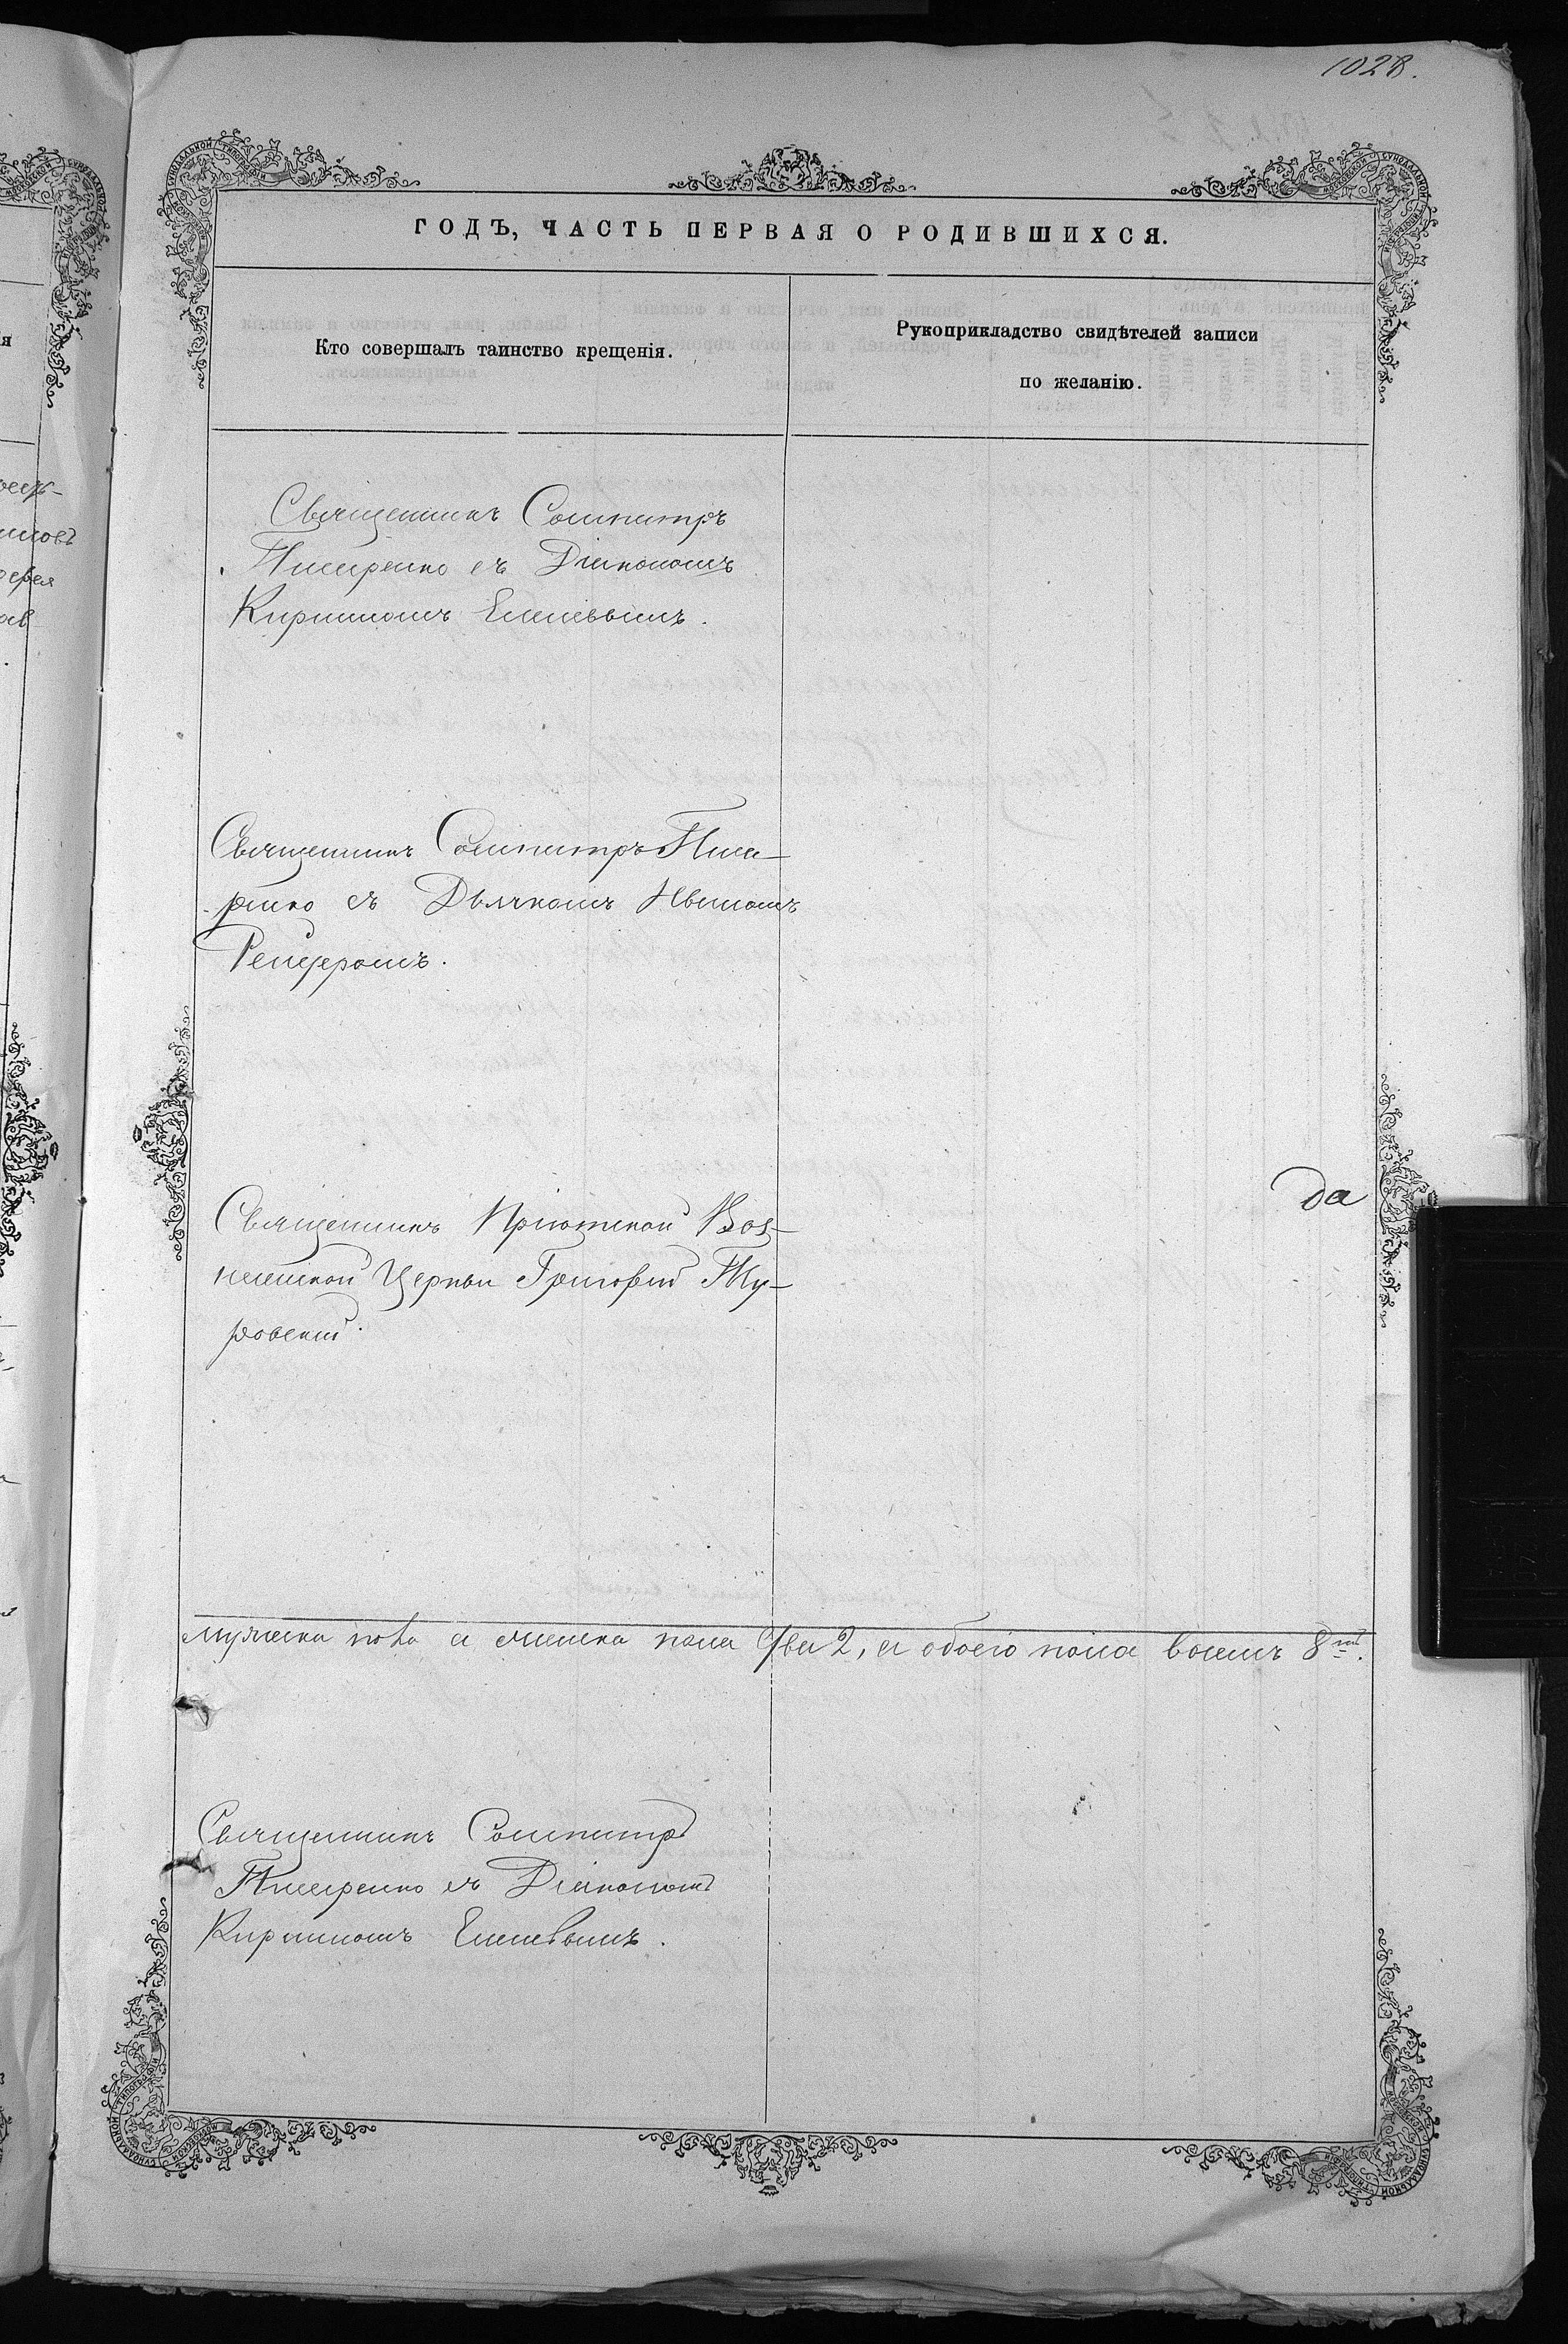 1028.
ГОДЪ, ЧАСТЬ ПЕРВАЯ О РОДИВШИХСЯ.
Кто совершалъ таинство крещенія.
Рукоприкладство свидѣтелей записи
по желанію.
Священникъ Сосипатръ
Писаренко съ Діакономъ
Кириломъ
Священникъ Сосипатръ Писа-
ренко съ Дьячкомъ Иваномъ
да
Священникъ Пріютской Воз-
несенской Церкви Григорій Ту-
ровскій.
мужеска пола а женска пола два 2, а обоего пола восемъ 8
Священникъ Сосипатръ
Писаренко съ Діакономъ
Кириломъ